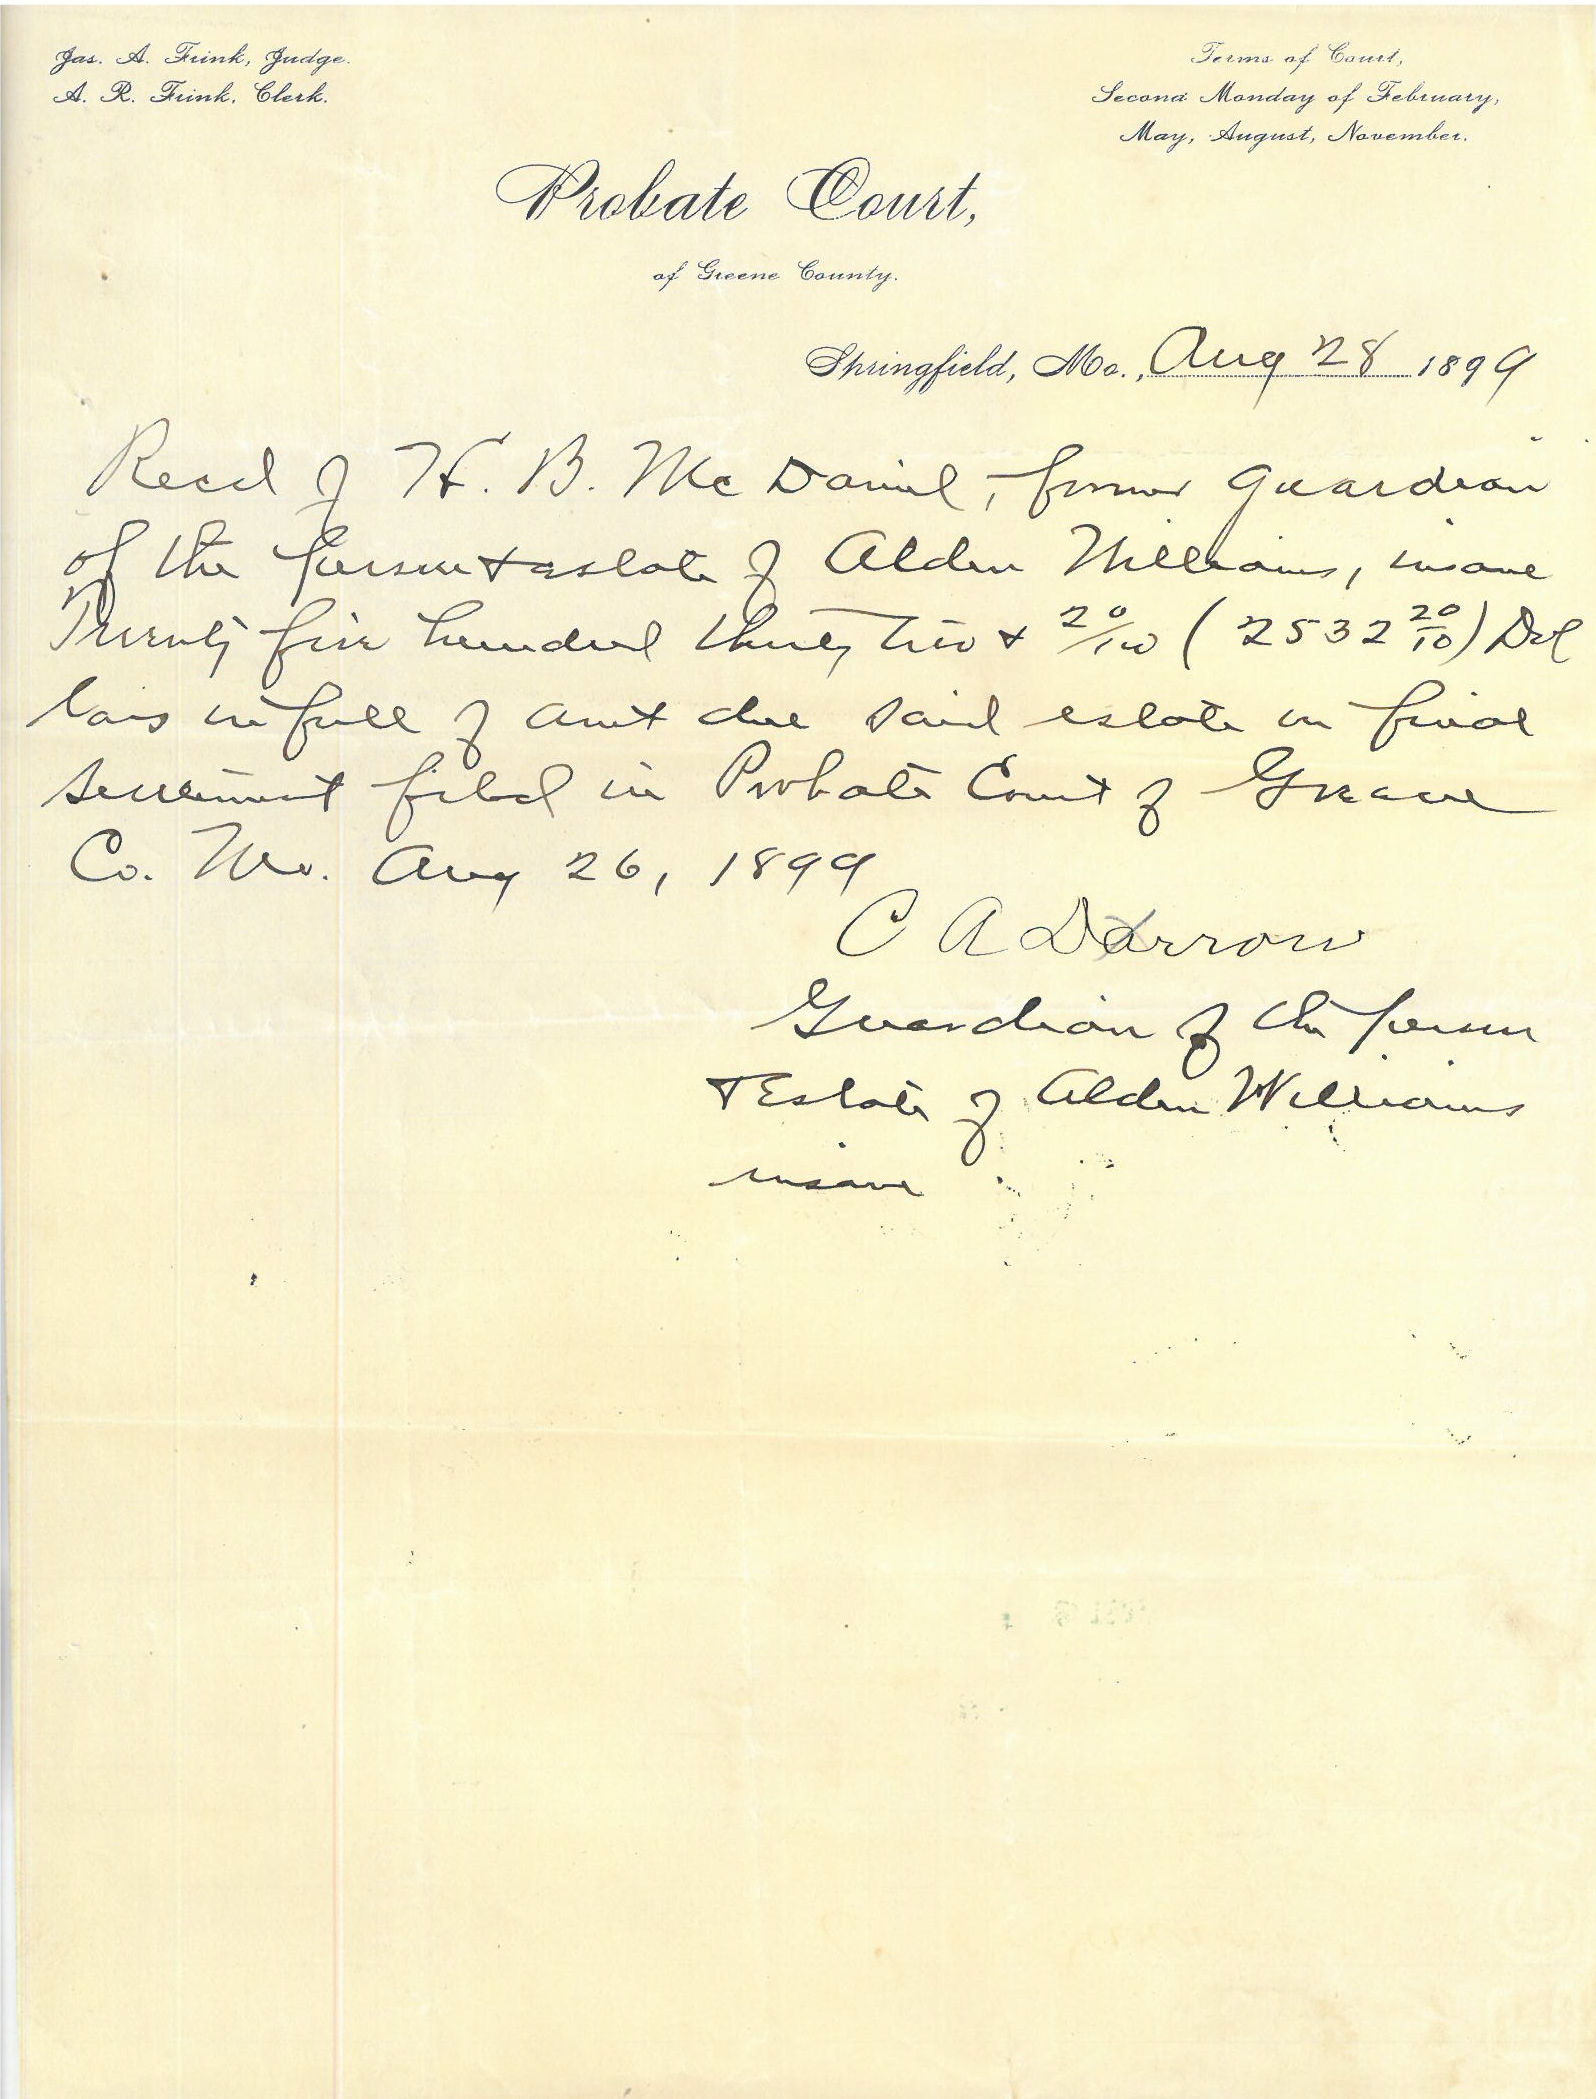 Jas. A. Frink, Judge.
A. R. Frink, Clerk.
Terms of Court,
Second Monday of February,
May, August, November.
Probate Court,
of Greene County.
Springfield, Mo., Aug 28 1899
Recd of H. B. McDaniel, former Guardian
of the person & estate of Alden Williams, insane
Twenty five hundred thirty two & 20/100 (2532 20/10) Dol
lars in full of amt due said estate in final
settlement filed in Probate Court of Greene
Co. Mo. Aug 26, 1899
C A Darrow
Guardian of the person
& Estate of Alden Williams
insane